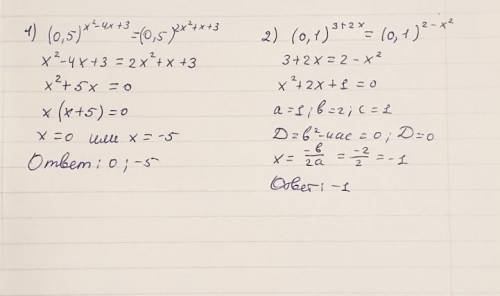 1) (0,5)^(x²-4x+3) = (0,5)^(2x²+x+3)
x²-4x+3 = 2x²+x+3
x²+5x = 0
x(x+5) = 0
x=0 или x=-5
Ответ: 0; -5
2) (0,1)^(3+2x) = (0,1)^(2-x²)
3+2x = 2-x²
x²+2x+1 = 0
a=1; b=2; c=1
D=b²-4ac = 0; D=0
x = -b/2a = -2/2 = -1
Ответ: -1